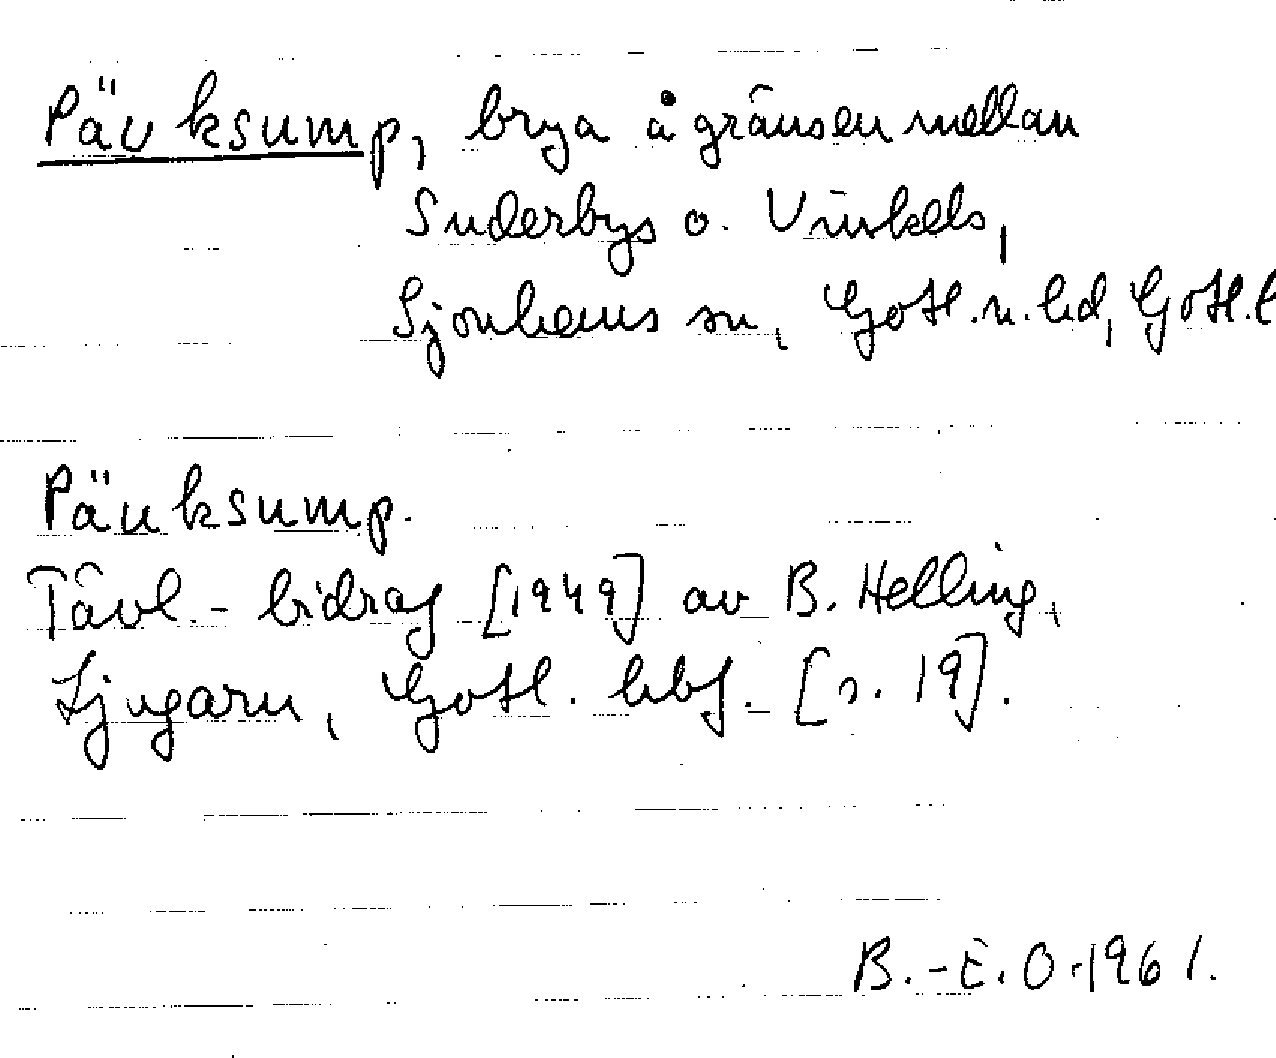 Päuksump, brya å gränsen mellan
Suderbys o. Vinkels,
Sjonhems sn, Gotl. n. hd, Gotl. l
Päuksump.
Tävl.-bidrag [1949] av B. Helling,
Ljugarn, Gotl. hbf. [s. 19].
B.-E. O. 1961.